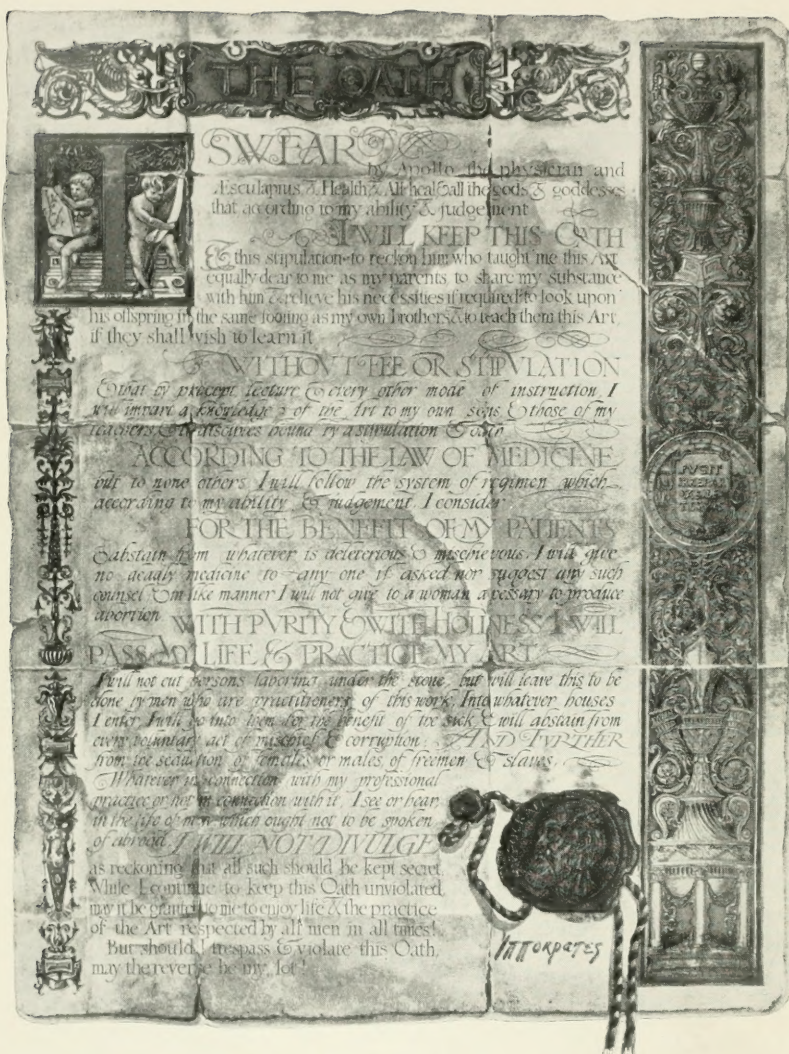 THE OATH
I SWEAR
by Apollo, the physician and
Æsculapius, & Health & All-heal & all the gods & goddesses
that according to my ability & judgement
I WILL KEEP THIS OATH
& this stipulation-to reckon him who taught me this Art
equally dear to me as my parents, to share my substance
with him & relieve his necessities if required: to look upon
his offspring in the same footing as my own brothers, & to teach them this Art
if they shall wish to learn it
WITHOVT FEE OR STIPVLATION
& that by precept, lecture & every other mode of instruction, I
will impart a knowledge of the Art to my own sons, & those of my
teachers, & to disciples bound by a stipulation & oath
ACCORDING TO THE LAW OF MEDICINE
but to none others. I will follow the system of regimen which,
according to my ability & judgement, I consider
FOR THE BENEFIT OF MY PATIENTS
& abstain from whatever is deleterious & mischievous. I will give
no deadly medicine to any one if asked nor suggest any such
counsel & in like manner I will not give to a woman a pessary to produce
abortion WITH PVRITY & WITH HOLINESS I WILL
PASS MY LIFE & PRACTICE MY ART
I will not cut persons laboring under the stone, but will leave this to be
done by men who are practitioners of this work. Into whatever houses
I enter, I will go into them for the benefit of the sick & will abstain from
every voluntary act of mischief & corruption: AND FVRTHER
from the seduction of females or males, of freemen & slaves.
Whatever in connection with my professional
practice or not in connection with it, I see or hear
in the life of men which ought not to be spoken
of abroad I WILL NOT DIVULGE
as reckoning that all such should be kept secret.
While I continue to keep this Oath unviolated,
may it be granted to me to enjoy life & the practice
of the Art respected by all men in all times!
But should I trespass & violate this Oath,
may the reverse be my lot!
Ιπποκρατες